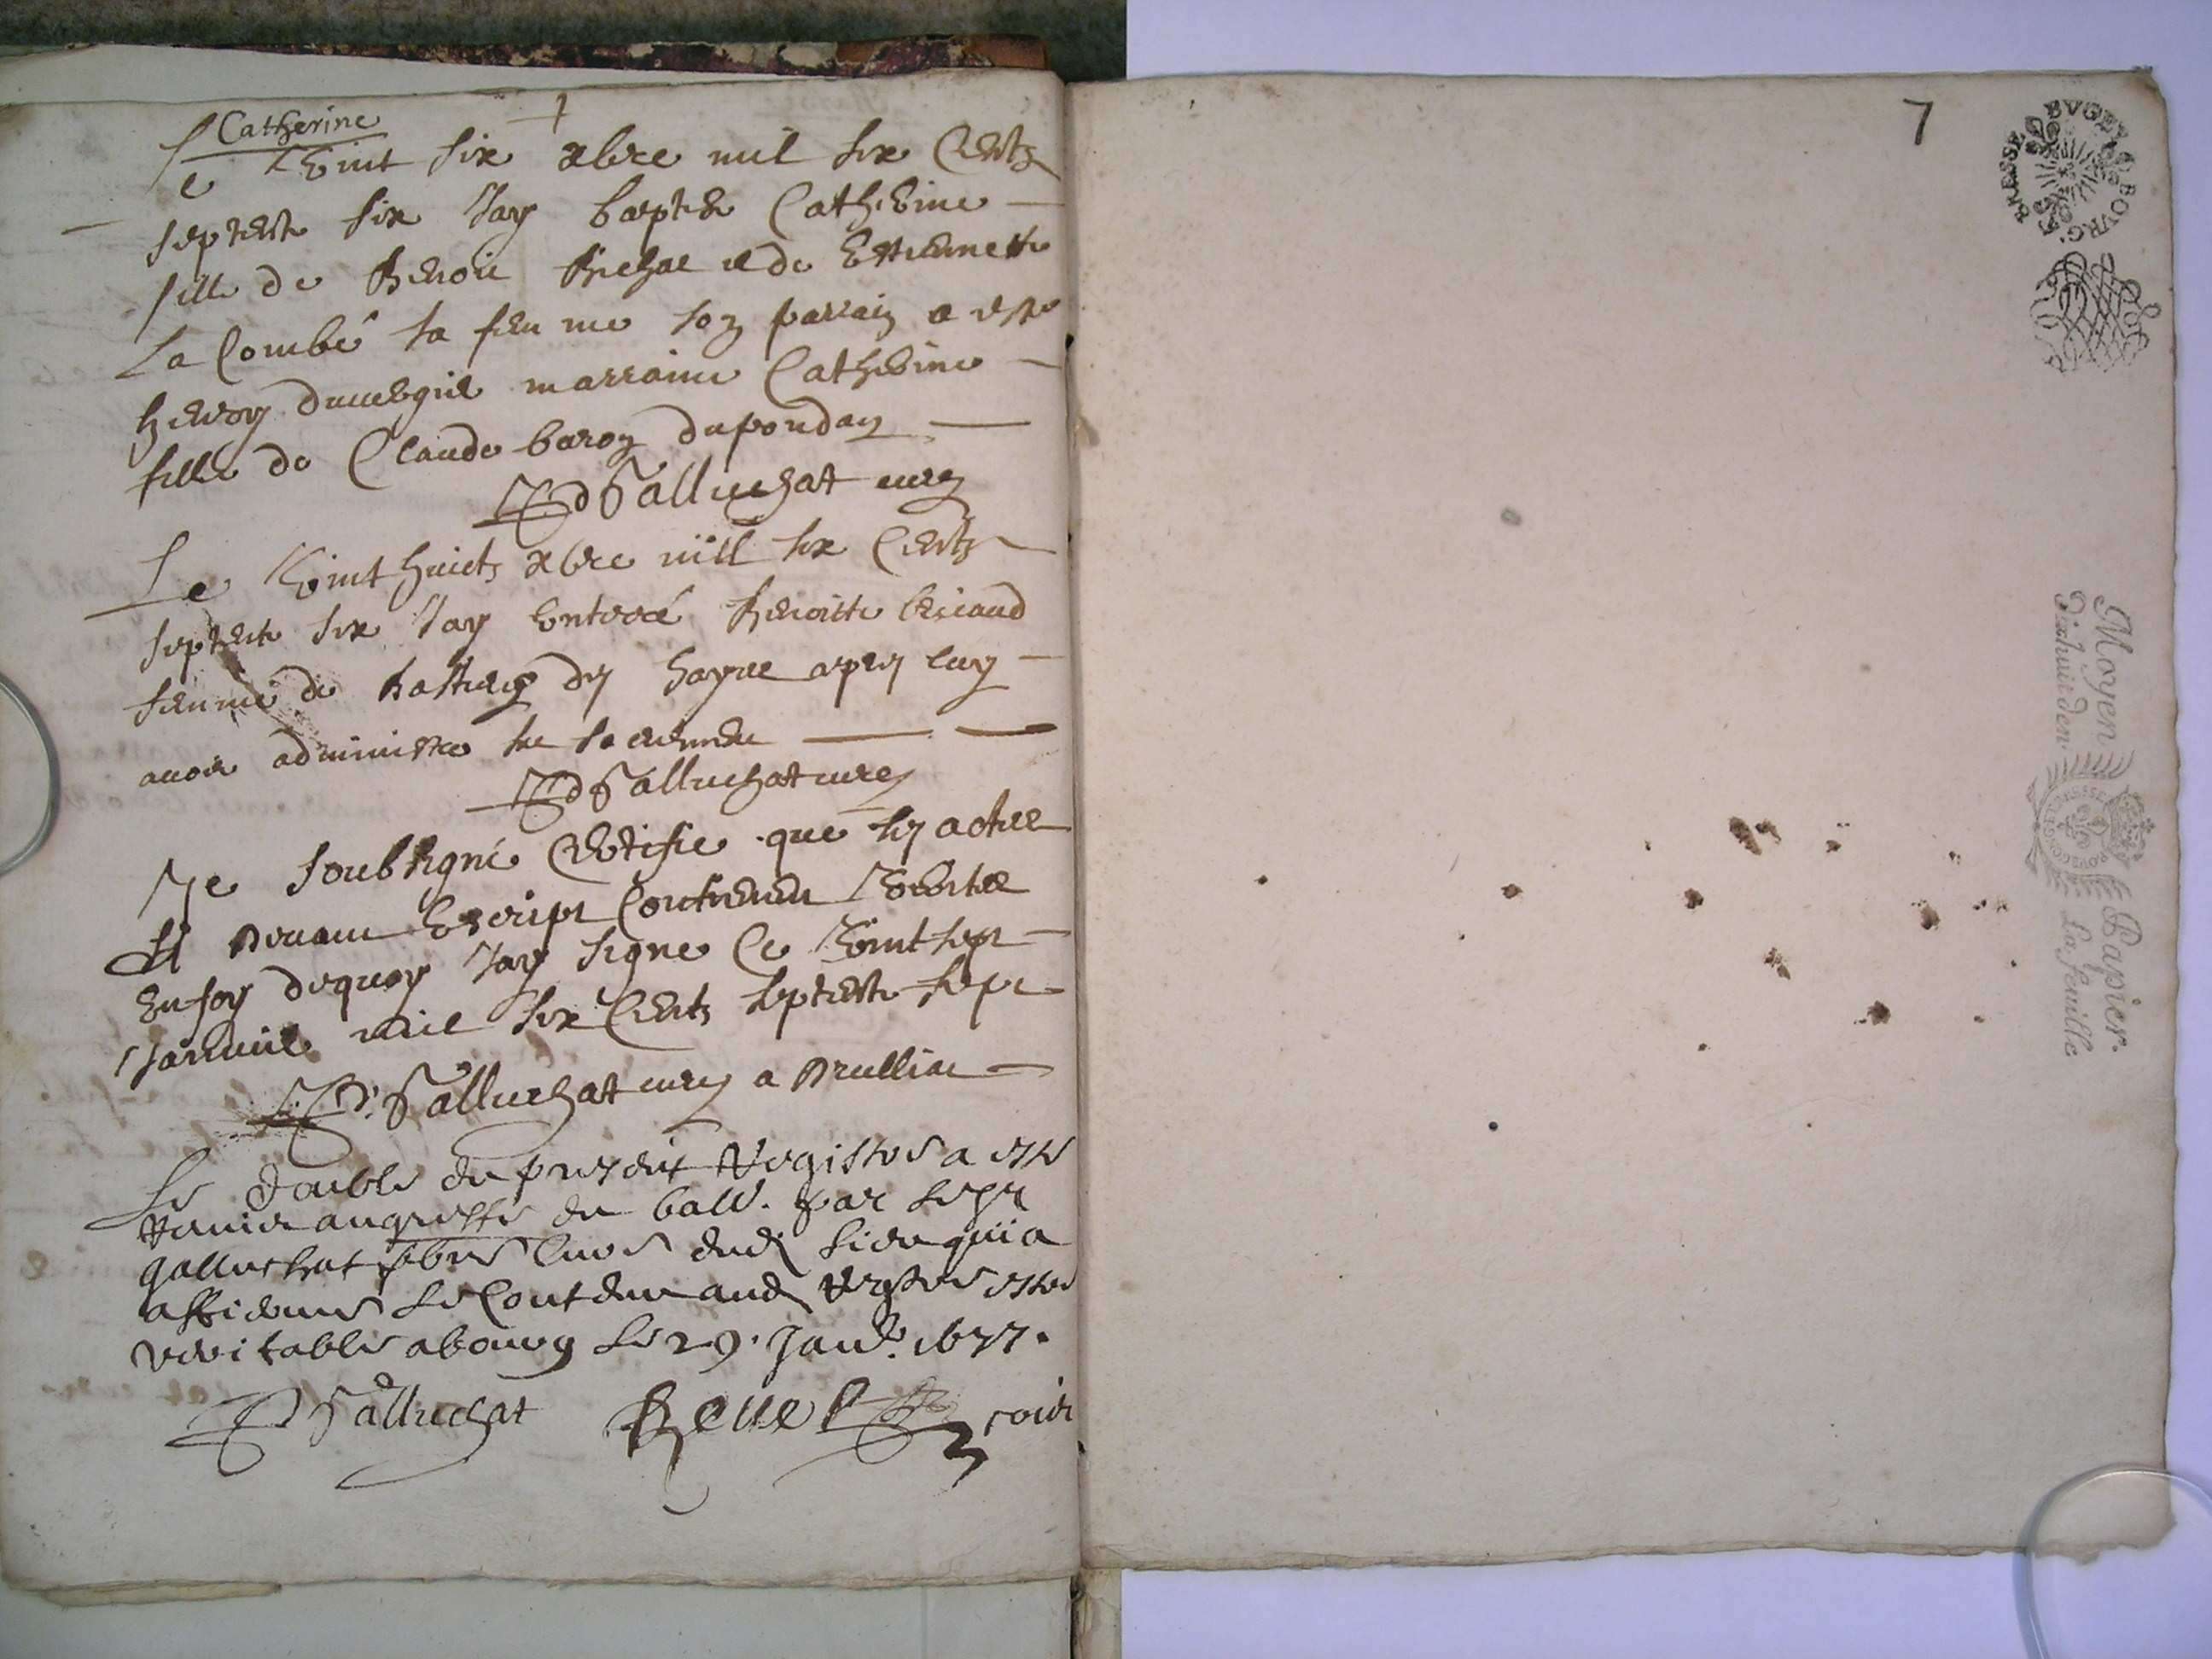 Catherine
Le vint six xbre mil six Cents
septente six Jay baptise Catherine
fille de Benoit Bichat et de Estiennette
La Combe sa femme son parrain a este
marraine Catherine
fille de Claude baron
Galluchat cure
Le vint huict xbre mill six Cents
septente six Jay Enterré Benoitte
femme de apres luy
avoir administre les sacremen
Galluchat cure
Je soubsigné Certifie que les actes
cy devant Escript Contienent veritee
En foy dequoy Jay signe Ce vint sept
Janvier mil six Cents septente sept
Galluchat cure a Drullia
Le double du present Registre a este
remis au greffe du baill. par le sr
galluchat pbre Cure dud. lieu qui a
affirme le Contenu aud. Registre estre
veritable a bourg le 29. Janv. 1677.
Galluchat Revel
7
BRESSE BVGEY BOVRG.
Moyen Papier.
Dixhuit den. La feuille